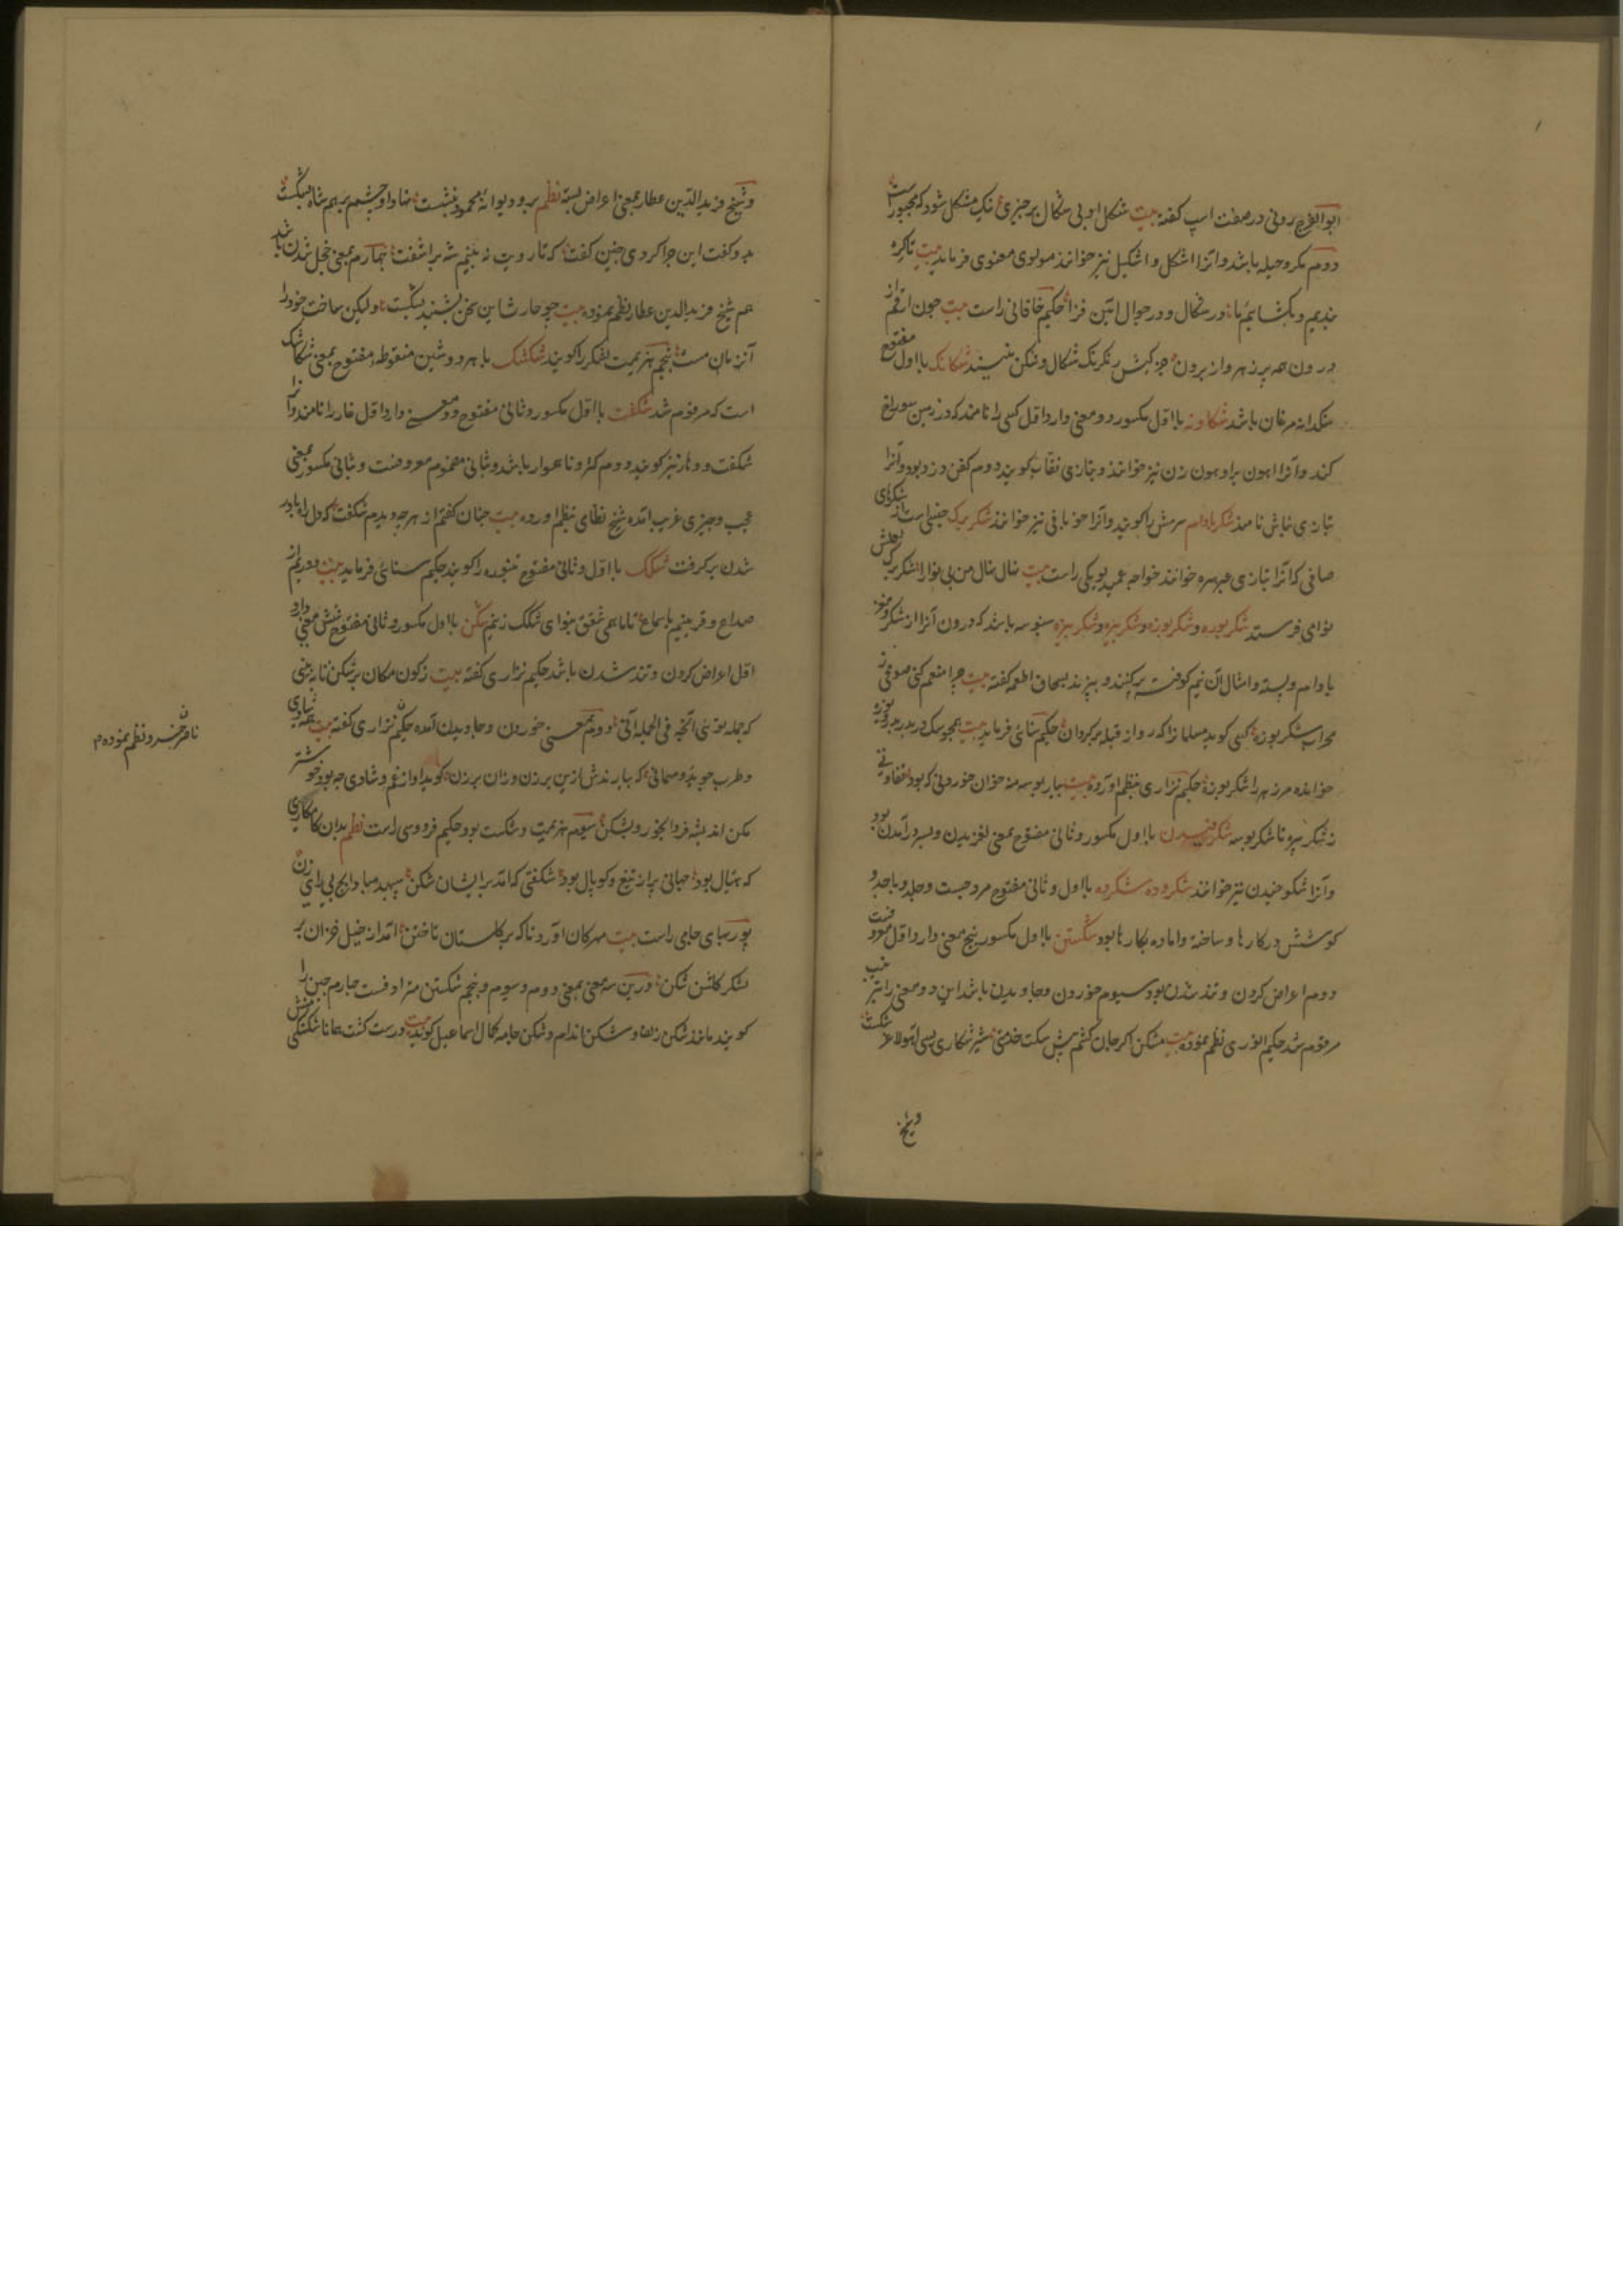 ابوالفرج رونی در صفت اسب کفته بیت شکل او بی شکال بر چیزی نیک مشکل شود که مجبور است
دوم مکر و حیله باشد و آنرا اشکل و اشکیل نیز خوانند مولوی معنوی فرماید بیت تا کره
بندیم و بکشائیم ما در شکال و در جوال امتن فزا حکیم خاقانی راست بیت چون ارقم از
درون همه بر زهر و از برون جز کیش رنکرنک شکال و شکن نیند شکانک با اول مفتوح
سنکدانه مرغان باشد شکاونه با اول مکسور دو معنی دارد اول کسی را نامند که در زمین سوراخ
کند و آنرا اهون بر و اهون زن نیز خوانند و بتازی نقاب کویند دوم کفن دزد بود و آنرا
بتازی نباش نامند شکر بادام مرمش را کویند و آنرا خوبانی نیز خوانند شکر برک جنسی است از شکرهای
صافی که آنرا بتازی خوانند خواجه عمید لویکی راست بیت سال سال من بی نوا را شکر برک
نوامی فرستد شکر بوره و شکر بوزه و شکر بیره و شکر بیزه سنبوسه باشد که درون آنرا از شکر و مغز
بادام و پسته و امثال آن نیم کوفته پر کنند و بپزند بسحاق اطعمه کفته بیت چرا منعم کنی صوفی ز
محراب شکر بوزه کسی کوید مسلمانرا که رو از قبله برکردان حکیم سنائی فرماید بیت همچو سک در بدر بدریوزه
خوانده مر زهر را شکر بوزه حکیم نزاری بنظم آورده بیت بیار بوسه منه خوان خوردنی که بود تفاوتی
ز شکر بیره تا شکر بوسه شکرفیدن با اول مکسور و ثانی مفتوح بمعنی لغزیدن و بسر در آمدن بود
و آنرا شکوخیدن نیز خوانند شکروده شکرده با اول و ثانی مفتوح مرد چست و جلد و با جد و
کوشش در کارها و ساخته و اماده بکارها بود شکستن با اول مکسور پنج معنی دارد اول معروفست
دوم اعراض کردن و تند شدن بود سیوم خوردن و جاویدن باشد این دو معنی را بترتیب
مرقوم شد حکیم انوری نظم نموده بیت مشکن اکر جان کشم پیش سکت خدمتی شیر شکاری بسی آهوی لاغر شکست
و شیخ
و شیخ فرید الدین عطار بمعنی اعراض بسته نظم بر دیوانه محمود بنشست نهاد او چشم بر هم شاه بشکست
بدو کفت این چرا کردی چنین کفت که تا رویت نه بینم شه بر اشفت چهارم بمعنی خجل شدن باشد
هم شیخ فرید الدین عطار نظم نموده بیت چو خارشا این سخن بشنید بشکست ولیکن ساخت خود را
آنزمان مست پنجم هزیمت لشکر را کویند شکشک با هر دو شین منقوطه مفتوح بمعنی شکاشک
است که مرقوم شد شکفت با اول مکسور و ثانی مفتوح دو معنی دارد اول غار را نامند و آنرا
شکفت و نیز کویند دوم کژ و ناهموار باشد و ثانی مضموم معروفست و ثانی مکسور بمعنی
عجب و چیزی غریب آمده شیخ نظامی بنظم آورده بیت چنان کفتم از هر چه دیدم شکفت که دل راه باور
شدن بر کرفت شکک با اول و ثانی مفتوح تنبوره را کویند حکیم سنائی فرماید بیت
صداع و قر بینیم باسماع بنوای شکک زنیم شکن با اول مکسور و ثانی مفتوح شش معنی دارد
اول اعراض کردن و تند شدن باشد حکیم نزاری کفته بیت ز کون مکان بر شکن تا به بینی
که جمله توئی آنچه فی الجمله آنی دوم بمعنی خوردن و جاویدن آمده حکیم نزاری کفته بیت همه شادی
و طرب جوید و مهمانی که بیارندش ازین برزن و زان برزن کوید آواز غم و شادی چه بود خوشتر
مکن اندیشه فردا بخور و بشکن سیوم هزیمت و شکست بود حکیم فردوسی راست نظم بدان کامکاری
که هیتال بود جهانی پر از تیغ و کوپال بود شکفتی که آمد بر ایشان شکن سپهبد مبادا هیچ بی رای زن
پور بهای جامی راست بیت مهرکان آورد ناکه بر کلستان تاختن آمد از خیل خزان بر
لشکر کلشن شکن و درین سه معنی بمعنی دوم و سیوم و پنجم شکستن مرادفست چهارم چین را
کویند مانند شکن زلف و شکن اندام و شکن جامه کمال اسماعیل کوید بیت درست کشت همانا شکستکی منش
ناصر خسرو نظم نموده م